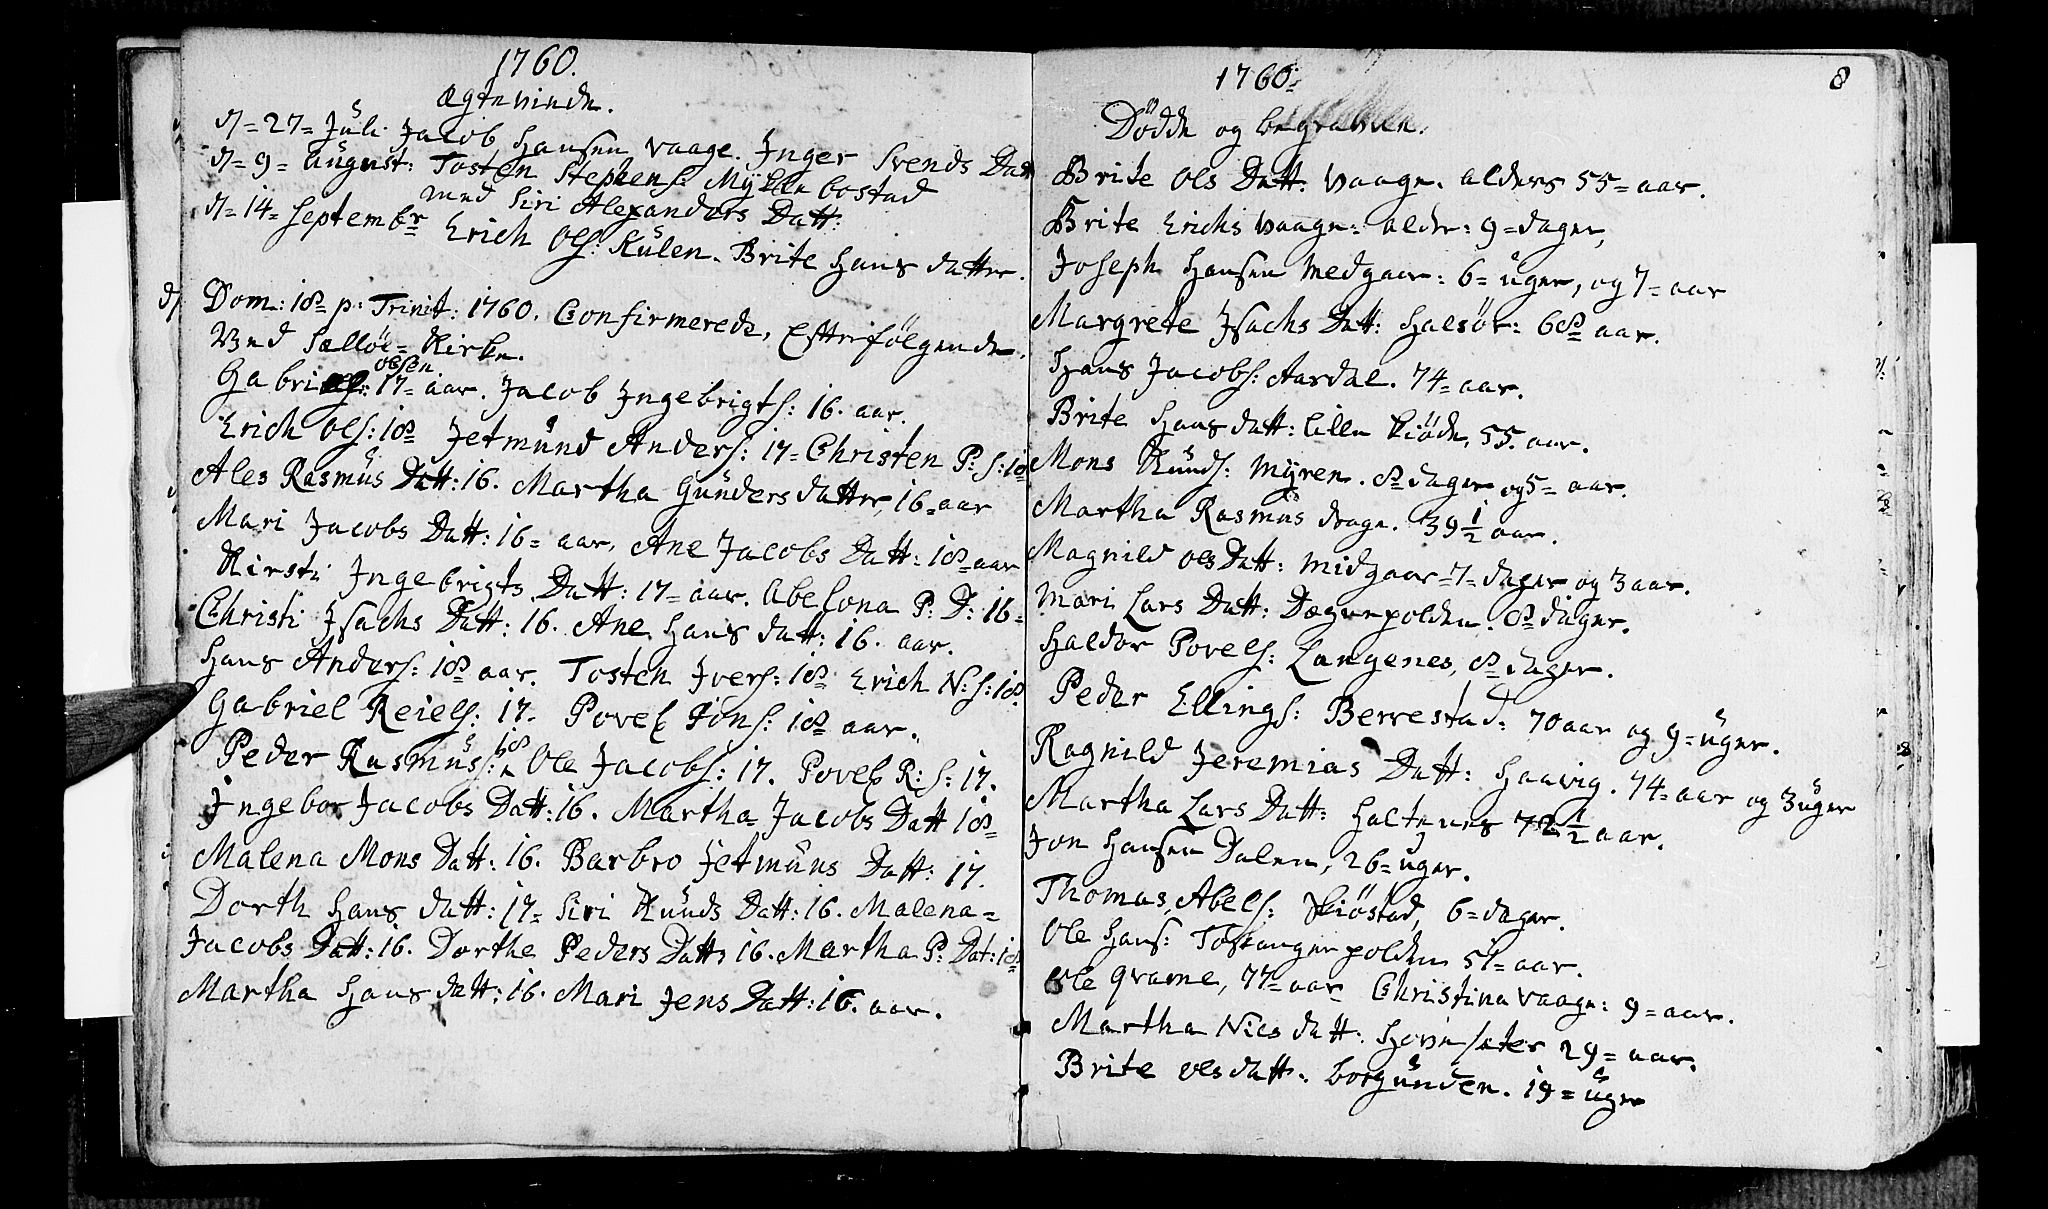 1760.
Ægteviede.
d/ = 27 = Juli. Jacob Hansen Vaage. Inger Svends Datt
d/ = 9 = august: Tosten Stephens: Myklebostad
med Siri Alexanders Datt:
d/ = 14 = Septembr Erich Ols: Kulen. Brite Hans datter.
d/ Dom: 18 p: Trinit: 1760. Confirmerede, Efterfølgende,
Ved Kirke.
Gabriel: olsen 17 = aar. Jacob Ingebrigts: 16. aar.
Erich Ols: 18 Jetmund Anders: 17 = Christen P: S: 18
Ales Rasmus Datt: 16. Martha Gunders datter, 16 = aar
Mari Jacobs Datt: 16 = aar, Ane Jacobs Datt: 18 = aar
Kirsti Ingebrigts Datt: 17 = aar. Abelona P: D: 16 =
Christi Isachs Datt: 16. Ane Hans datt: 16. aar.
Hans Anders: 18 aar. Tosten Ivers: 18 Erich N: S: 18.
Gabriel Reiels: 17. Povel Jons: 18 aar.
Peder Rasmus: 18 Ole Jacobs: 17. Povel R: S: 17.
Ingebor Jacobs Datt: 16. Martha = Jacobs Datt 18 =
Malena Mons Datt: 16. Barbro Jetmuns Datt: 17.
Dorth Hans datt: 17 = Siri Knuds Datt: 16. Malena =
Jacobs Datt: 16. Dorthe Peders Datt: 16. Martha P: Dat: 18
Martha Hans datt: 16. Mari Jens Datt: 16. aar.
8
1760:
Dödde og begravne.
Brite Ols Datt: Vaage. alders 55 = aar.
Brite Erichs Vaage: alder: 9 = dager,
Joseph Hansen Medgaar: 6 = uger, og 7 = aar
Margrete Isachs Datt: Halsör: 68 aar.
Hans Jacobs: Aardal. 74 = aar.
Brite Hans datt: Lille 55. aar.
Mons Knuds: Myren. 8 dager og 5 = aar.
Martha Rasmus drage. 39 1/2 aar.
Magnild Ols Datt: Midgaar = 7 = dager og 3 aar.
Mari Lars Datt: 8 dager.
Haldor Povels: Langenes, 8 dager.
Peder Ellings: Berrestad: 70 aar og 9 = uger.
Ragnild Jeremias Datt: Haavig. 74 = aar og 3 uger
Martha Lars Datt: 72 1/2 aar.
Jon Hansen Dalen, 26 = uger.
Thomas Abels: Skiöstad, 6 = dager.
Ole Hans: 51 = aar.
Ole Grame, 77 = aar Christina Vaage: 9 = aar.
Martha Nies datt: 29 = aar.
Brite ols datt: borgunden. 19 = uger